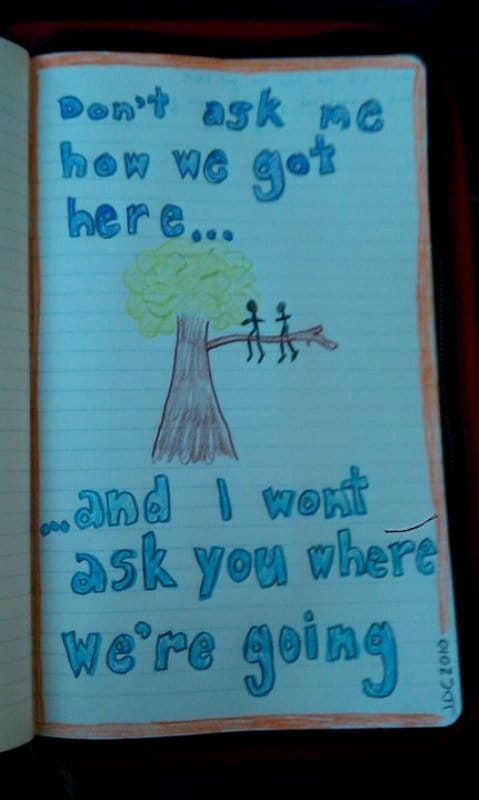 Don't ask me
how we got
here...
...and I wont
ask you where
we're going
JDC2010